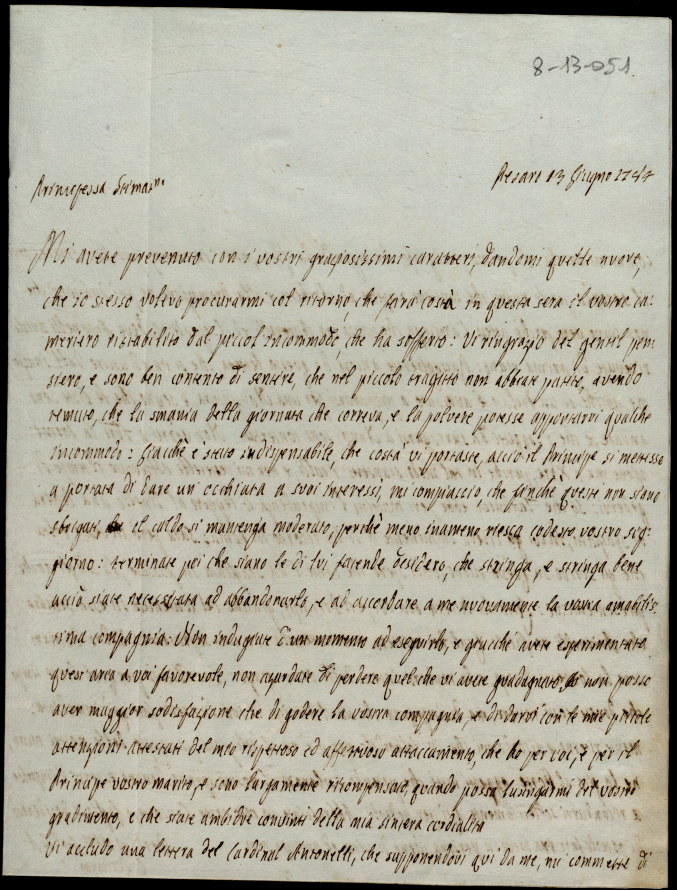 8-13-051.
Principessa Stimatma
Pesaro 13 Giugno
Mi avete prevenuto con i vostri graziosissimi caratteri, dandomi quelle nuove,
che io stesso volevo procurarmi col ritorno, che farà costà in questa sera il vostro ca:
meriero ristabilito dal piccol incommodo, che ha sofferto: Vi ringrazio del gentil pen:
siero, e sono ben contento di sentire, che nel piccolo tragitto non abbiate patite, avendo
temuto, che la smania della giornata che correva, e la polvere potesse apportarvi qualche
incommodo: Giacchè è stato indispensabile, che costà vi portaste, acciò il Principe si mettesse
a portata di dare un' occhiata a suoi interessi, mi compiaccio, che finchè questi non siano
sbrigati, il caldo si mantenga moderato, perchè meno inameno riesca codesto vostro sog:
giorno: terminate poi che siano le di lui facende desidero, che stringa, e stringa bene
acciò siate necessitata ad abbandonarlo, e ad accordare a me nuovamente la vostra amabilis:
sima compagnia: Non indugiate d'un momento ad eseguirlo, e giacchè avete esperimentata
quest' aria a voi favorevole, non azardate di perdere quel che vi avete guadagnato. Io non posso
aver maggior sodisfazione che di godere la vostra compagnia, e di darvi con le mie piccole
attenzioni attestati del mio rispettoso ed affettuoso attaccamento, che ho per voi, e per il
Principe vostro marito, e sono largamente ricompensato, quando possa lusingarmi del vostro
gradimento, e che state ambidue convinti della mia sincera cordialità
Vi accludo una lettera del Cardinal Antonelli, che supponendovi qui da me, mi commette di